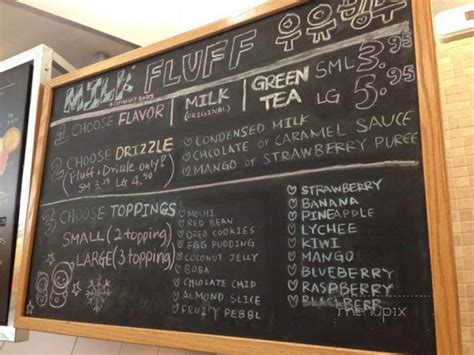 MILK FLUFF 우유빙수
1 CHOOSE FLAVOR
MILK
(ORIGINAL)
GREEN
TEA
SML 3.95
LG 5.95
2 CHOOSE DRIZZLE
(Fluff + Drizzle only?
SM 3.95 LG 4.50)
CONDENSED MILK
CHCOLATE OF CARAMEL SAUCE
MANGO OF STRAWBERRY PUREE
3 CHOOSE TOPPINGS
SMALL (2 topping)
LARGE (3 topping)
MOCHI
RED BEAN
OREO COOKIES
EGG PUDDING
COCONUT JELLY
BOBA
CHOCOLATE CHIP
ALMOND SLICE
FRUITY PEBBL
STRAWBERRY
BANANA
PINEAPPLE
LYCHEE
KIWI
MANGO
BLUEBERRY
RASPBERRY
BLACKBERR
menupix